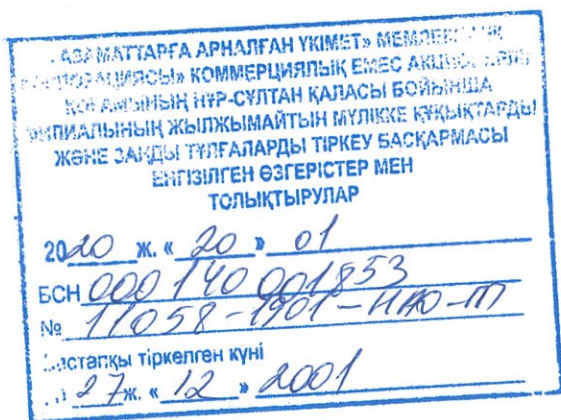 АЗАМАТТАРҒА АРНАЛҒАН ҮКІМЕТ» МЕМЛЕКЕТТІК
КОРПОРАЦИЯСЫ» КОММЕРЦИЯЛЫҚ ЕМЕС АКЦИОНЕРЛІК
ҚОҒАМЫНЫҢ НҰР-СҰЛТАН ҚАЛАСЫ БОЙЫНША
ФИЛИАЛЫНЫҢ ЖЫЛЖЫМАЙТЫН МҮЛІККЕ ҚҰҚЫҚТАРДЫ
ЖӘНЕ ЗАҢДЫ ТҰЛҒАЛАРДЫ ТІРКЕУ БАСҚАРМАСЫ
ЕНГІЗІЛГЕН ӨЗГЕРІСТЕР МЕН
ТОЛЫҚТЫРУЛАР
2020 ж. « 20 » 01
БСН 000140001853
№ 11058-1901-НАО-ІП
Бастапқы тіркелген күні
27 ж. « 12 » 2001